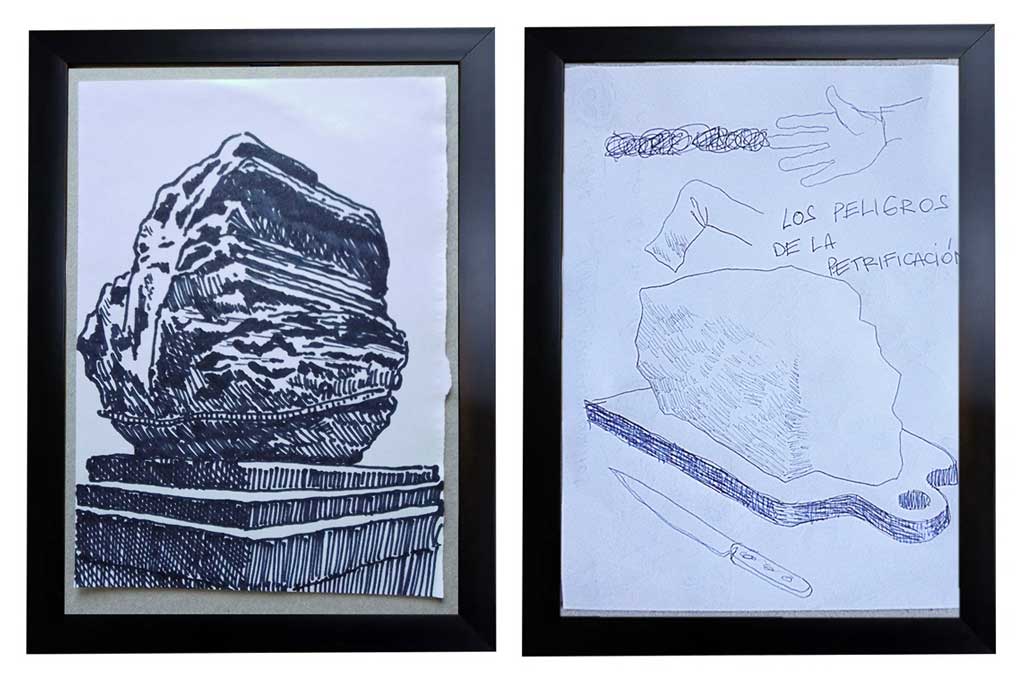 LOS PELIGROS
DE LA
PETRIFICACIÓN